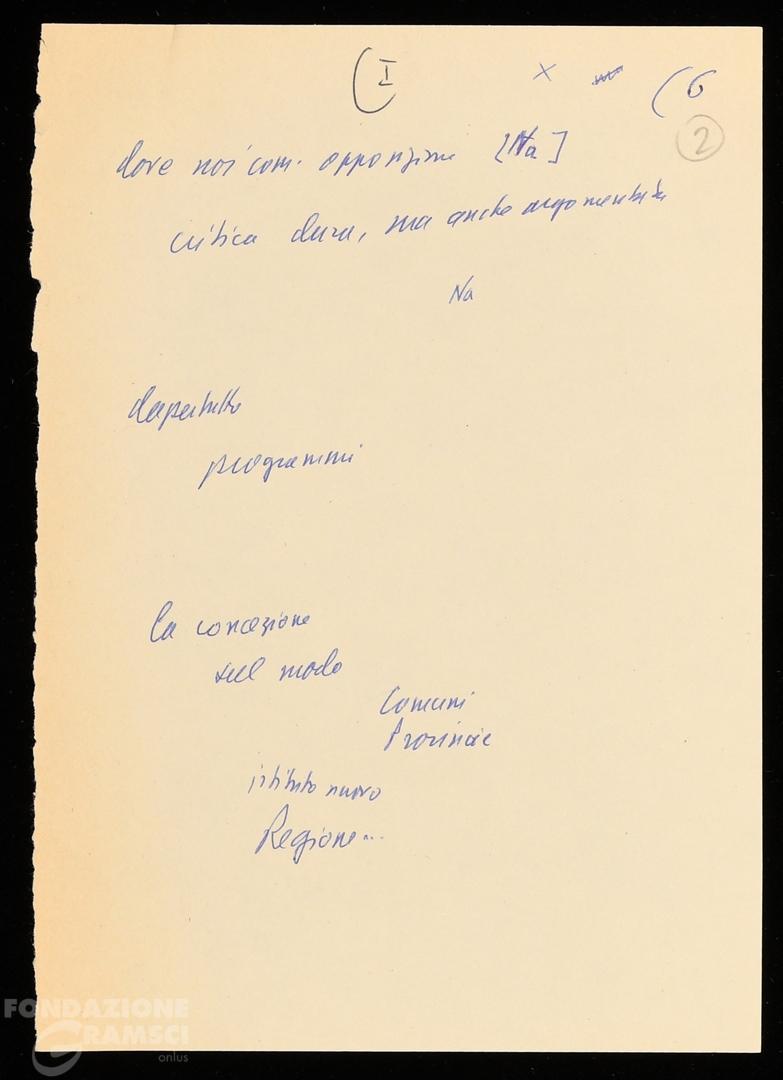 I × (6
2
dove noi com. opposizione [Na]
critica dura, ma anche argomentata
Na
dapertutto
programmi
la concezione
sul modo
Comuni
Provincie
istituto nuovo
Regione...
FONDAZIONE
GRAMSCI
onlus